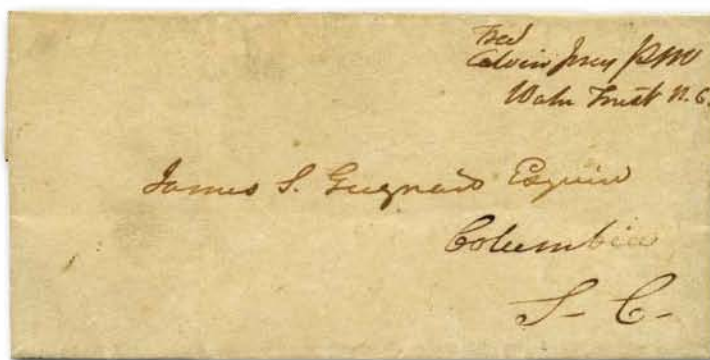 Free
Calvin Jones PM
Wake Forest N.C.
James S. Guignard Esquire
Columbia
S- C-